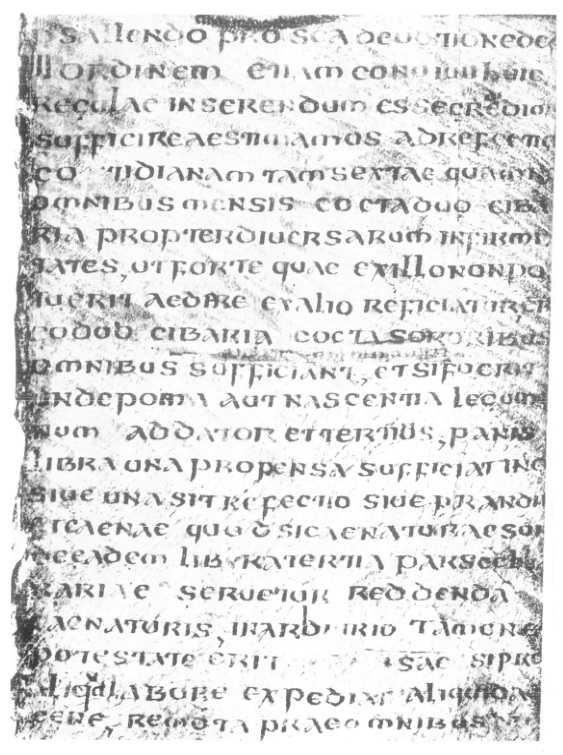 PSALLENDO PRO SCA DEUOTIONE DE
ORDINEM ETIAM CONUIUII HUIC
REGULAE INSERENDUM ESSE CREDIM
SUFFICIRE AESTIMAMOS AD REFECTIO
COTIDIANAM TAM SEXTAE QUAM
OMNIBUS MENSIS COCTA DUO CIBA
RIA PROPTER DIUERSARUM INFIRMI
TATES, UT FORTE QUAE EX ILLO NON PO
TUERIT AEDIRE EX ALIO REFICIATUR ER
GO DUO CIBARIA COCTA SORORIBUS
OMNIBUS SUFFICIANT, ET SI FUERIT
UNDE POMA AUT NASCENTIA LEGUMI
NUM ADDATOR ET TERTIUS, PANIS
LIBRA UNA PROPENSA SUFFICIAT IN
SIUE UNA SIT REFECTIO SIUE PRANDII
ET CAENAE QUOD SI CAENATURAE SUN
DE EADEM LIBRA TERTIA PARS CELL
RARIAE SERUETUR REDDENDA
CAENATURIS, IN ARBITRIO TAMEN E
POTESTATE ERIT SI PRO
ALIQD LABORE EXPEDIAT ALIQUID A
GERE, REMOTA PRAE OMNIBUS